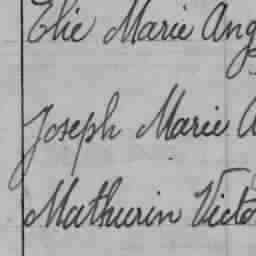 Elie Marie Ang
Joseph Marie A
Mathurin Victo